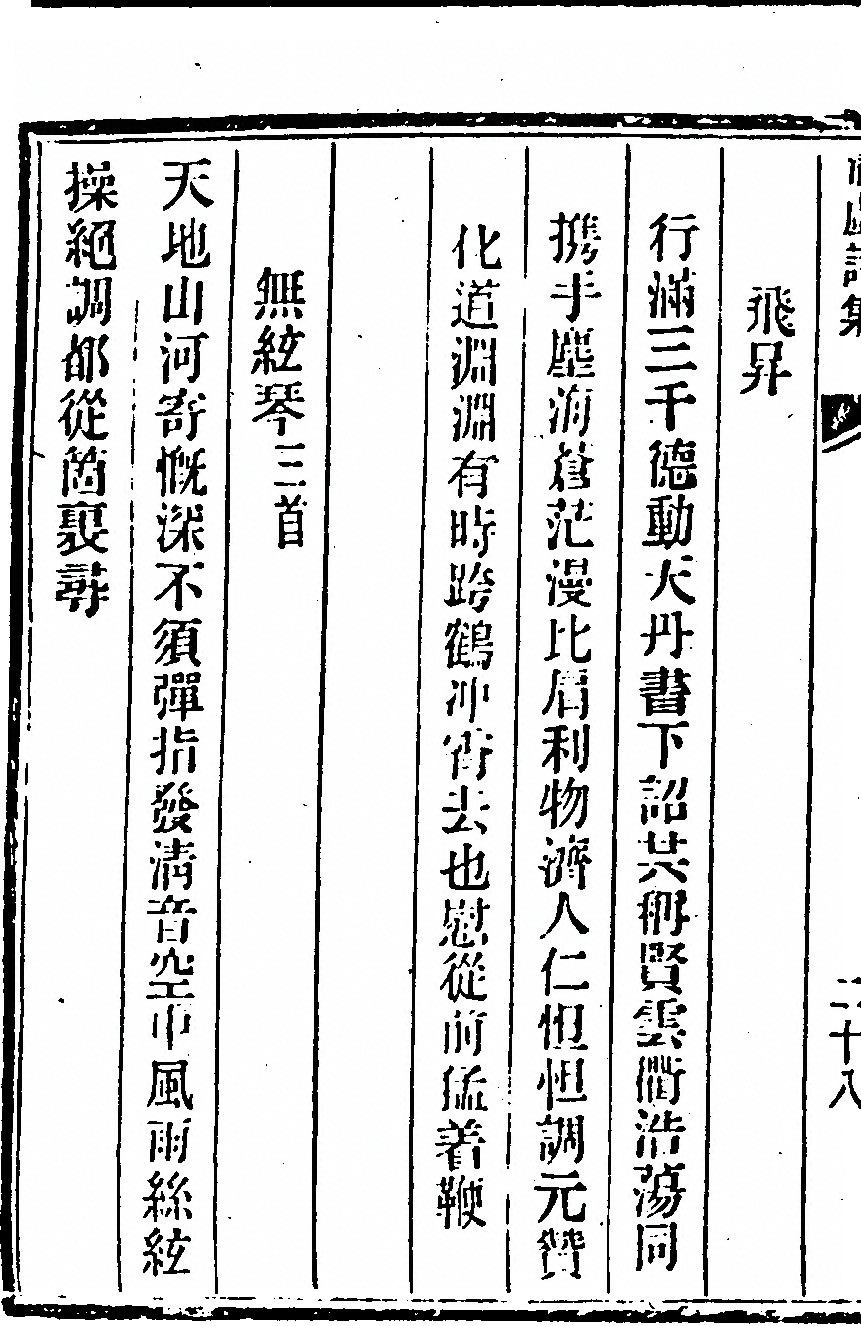 詩集
二十八
飛昇
行滿三千德動天丹書下詔共稱賢雲衢浩蕩同
携手塵海蒼茫漫比肩利物濟人仁怛怛調元贊
化道淵淵有時跨鶴冲霄去也慰從前猛着鞭
無絃琴三首
天地山河寄慨深不須彈指發清音空中風雨絲絃
操絕調都從箇裏尋